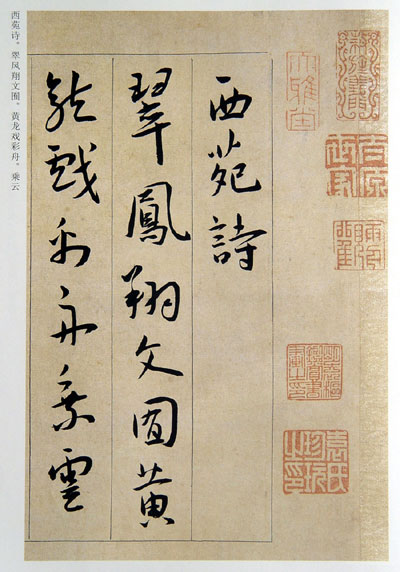 西苑詩
翠鳳翔文囿黃
龍戲彩舟乘雲
西苑诗。翠凤翔文囿。黄龙戏彩舟。乘云